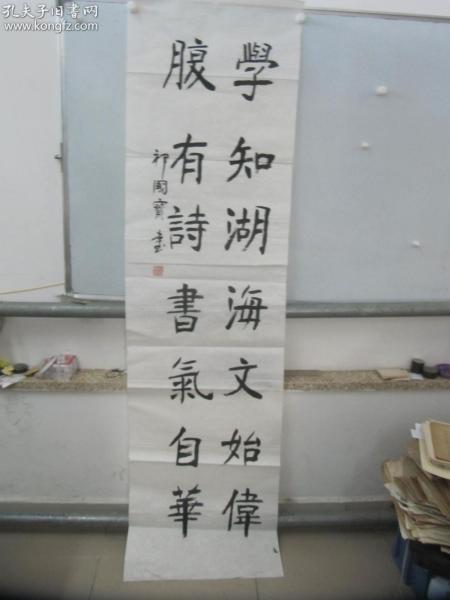 孔夫子旧书网
www.kongfz.com
學知湖海文始偉
腹有詩書氣自華
祁國寶書